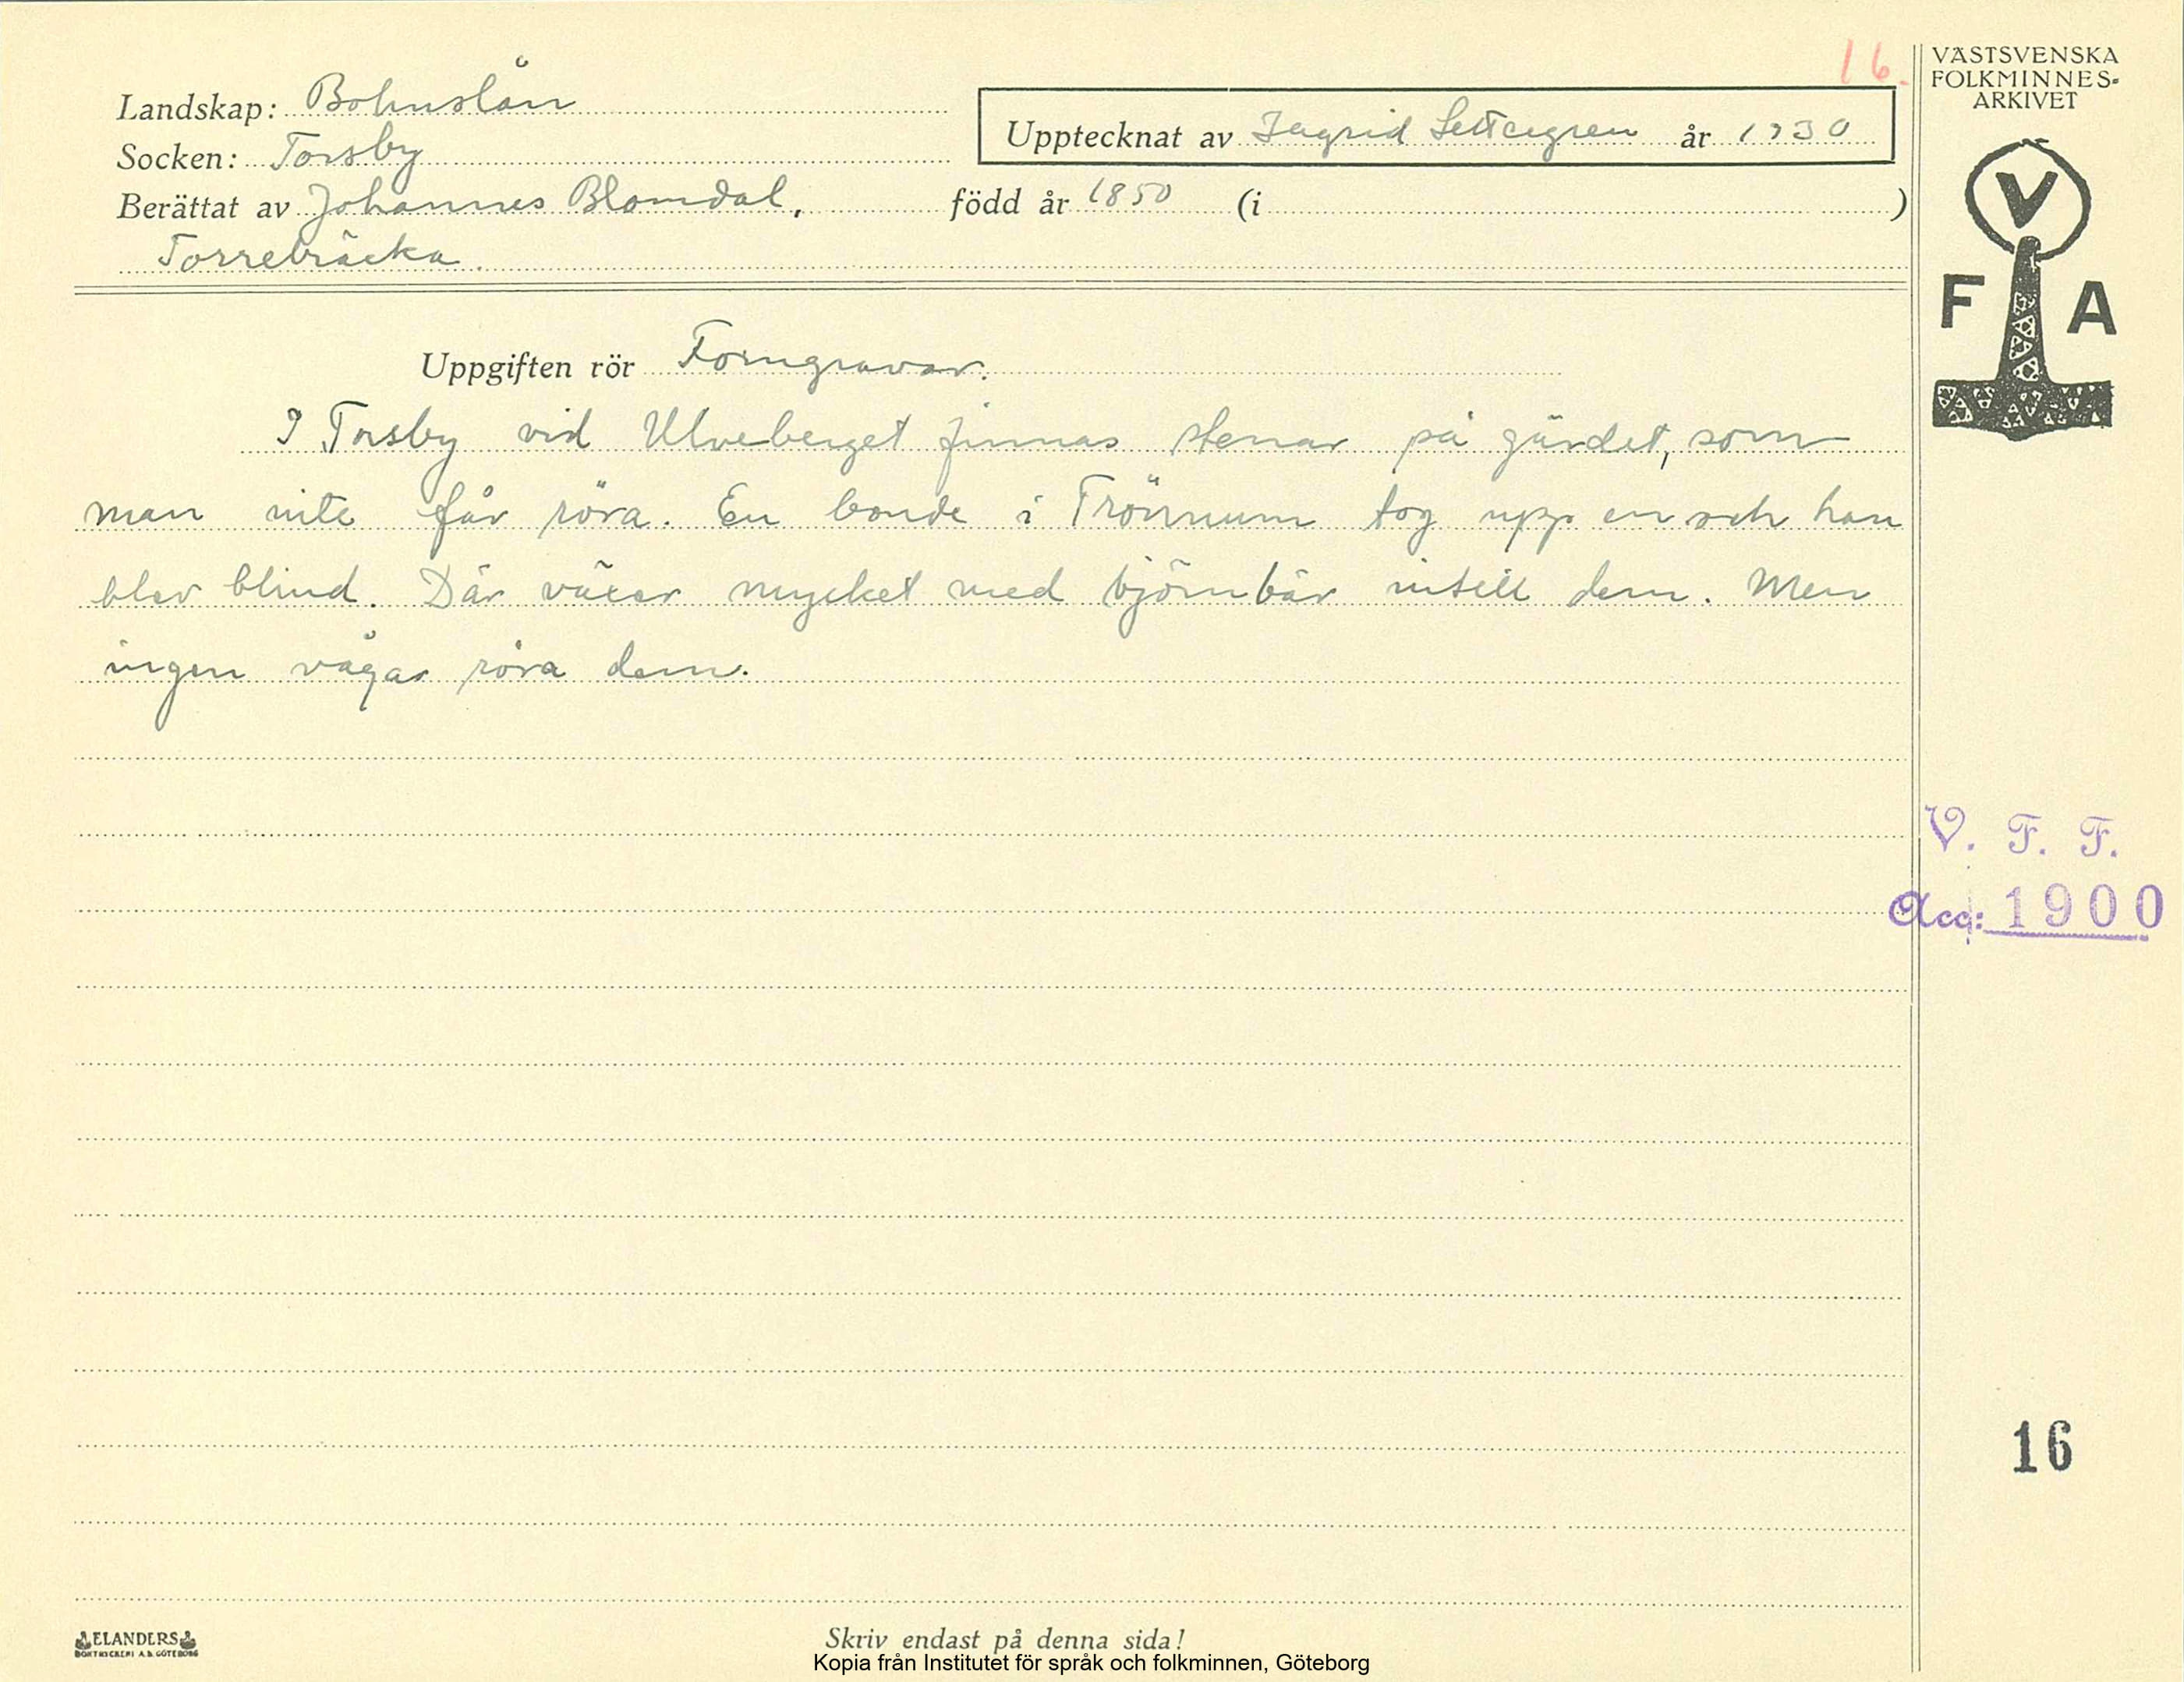 16.
VÄSTSVENSKA
FOLKMINNES-
ARKIVET
Landskap: Bohuslän
Upptecknat av Ingrid år 1930
Socken: Torsby
Berättat av Johannes Blomdal, född år 1850 (i )
Torrebräcka.
V
F A
Uppgiften rör Forngravar.
I Torsby vid Ulveberget finnas stenar på gärdet, som
man inte får röra. En bonde i Trönnum tog upp en och han
blev blind. Där växer mycket med björnbär intill dem. Men
ingen vågar röra dem.
V. F. F.
Acc: 1900
16
ELANDERS
BOKTRYCKERI A.B. GÖTEBORG
Skriv endast på denna sida!
Kopia från Institutet för språk och folkminnen, Göteborg